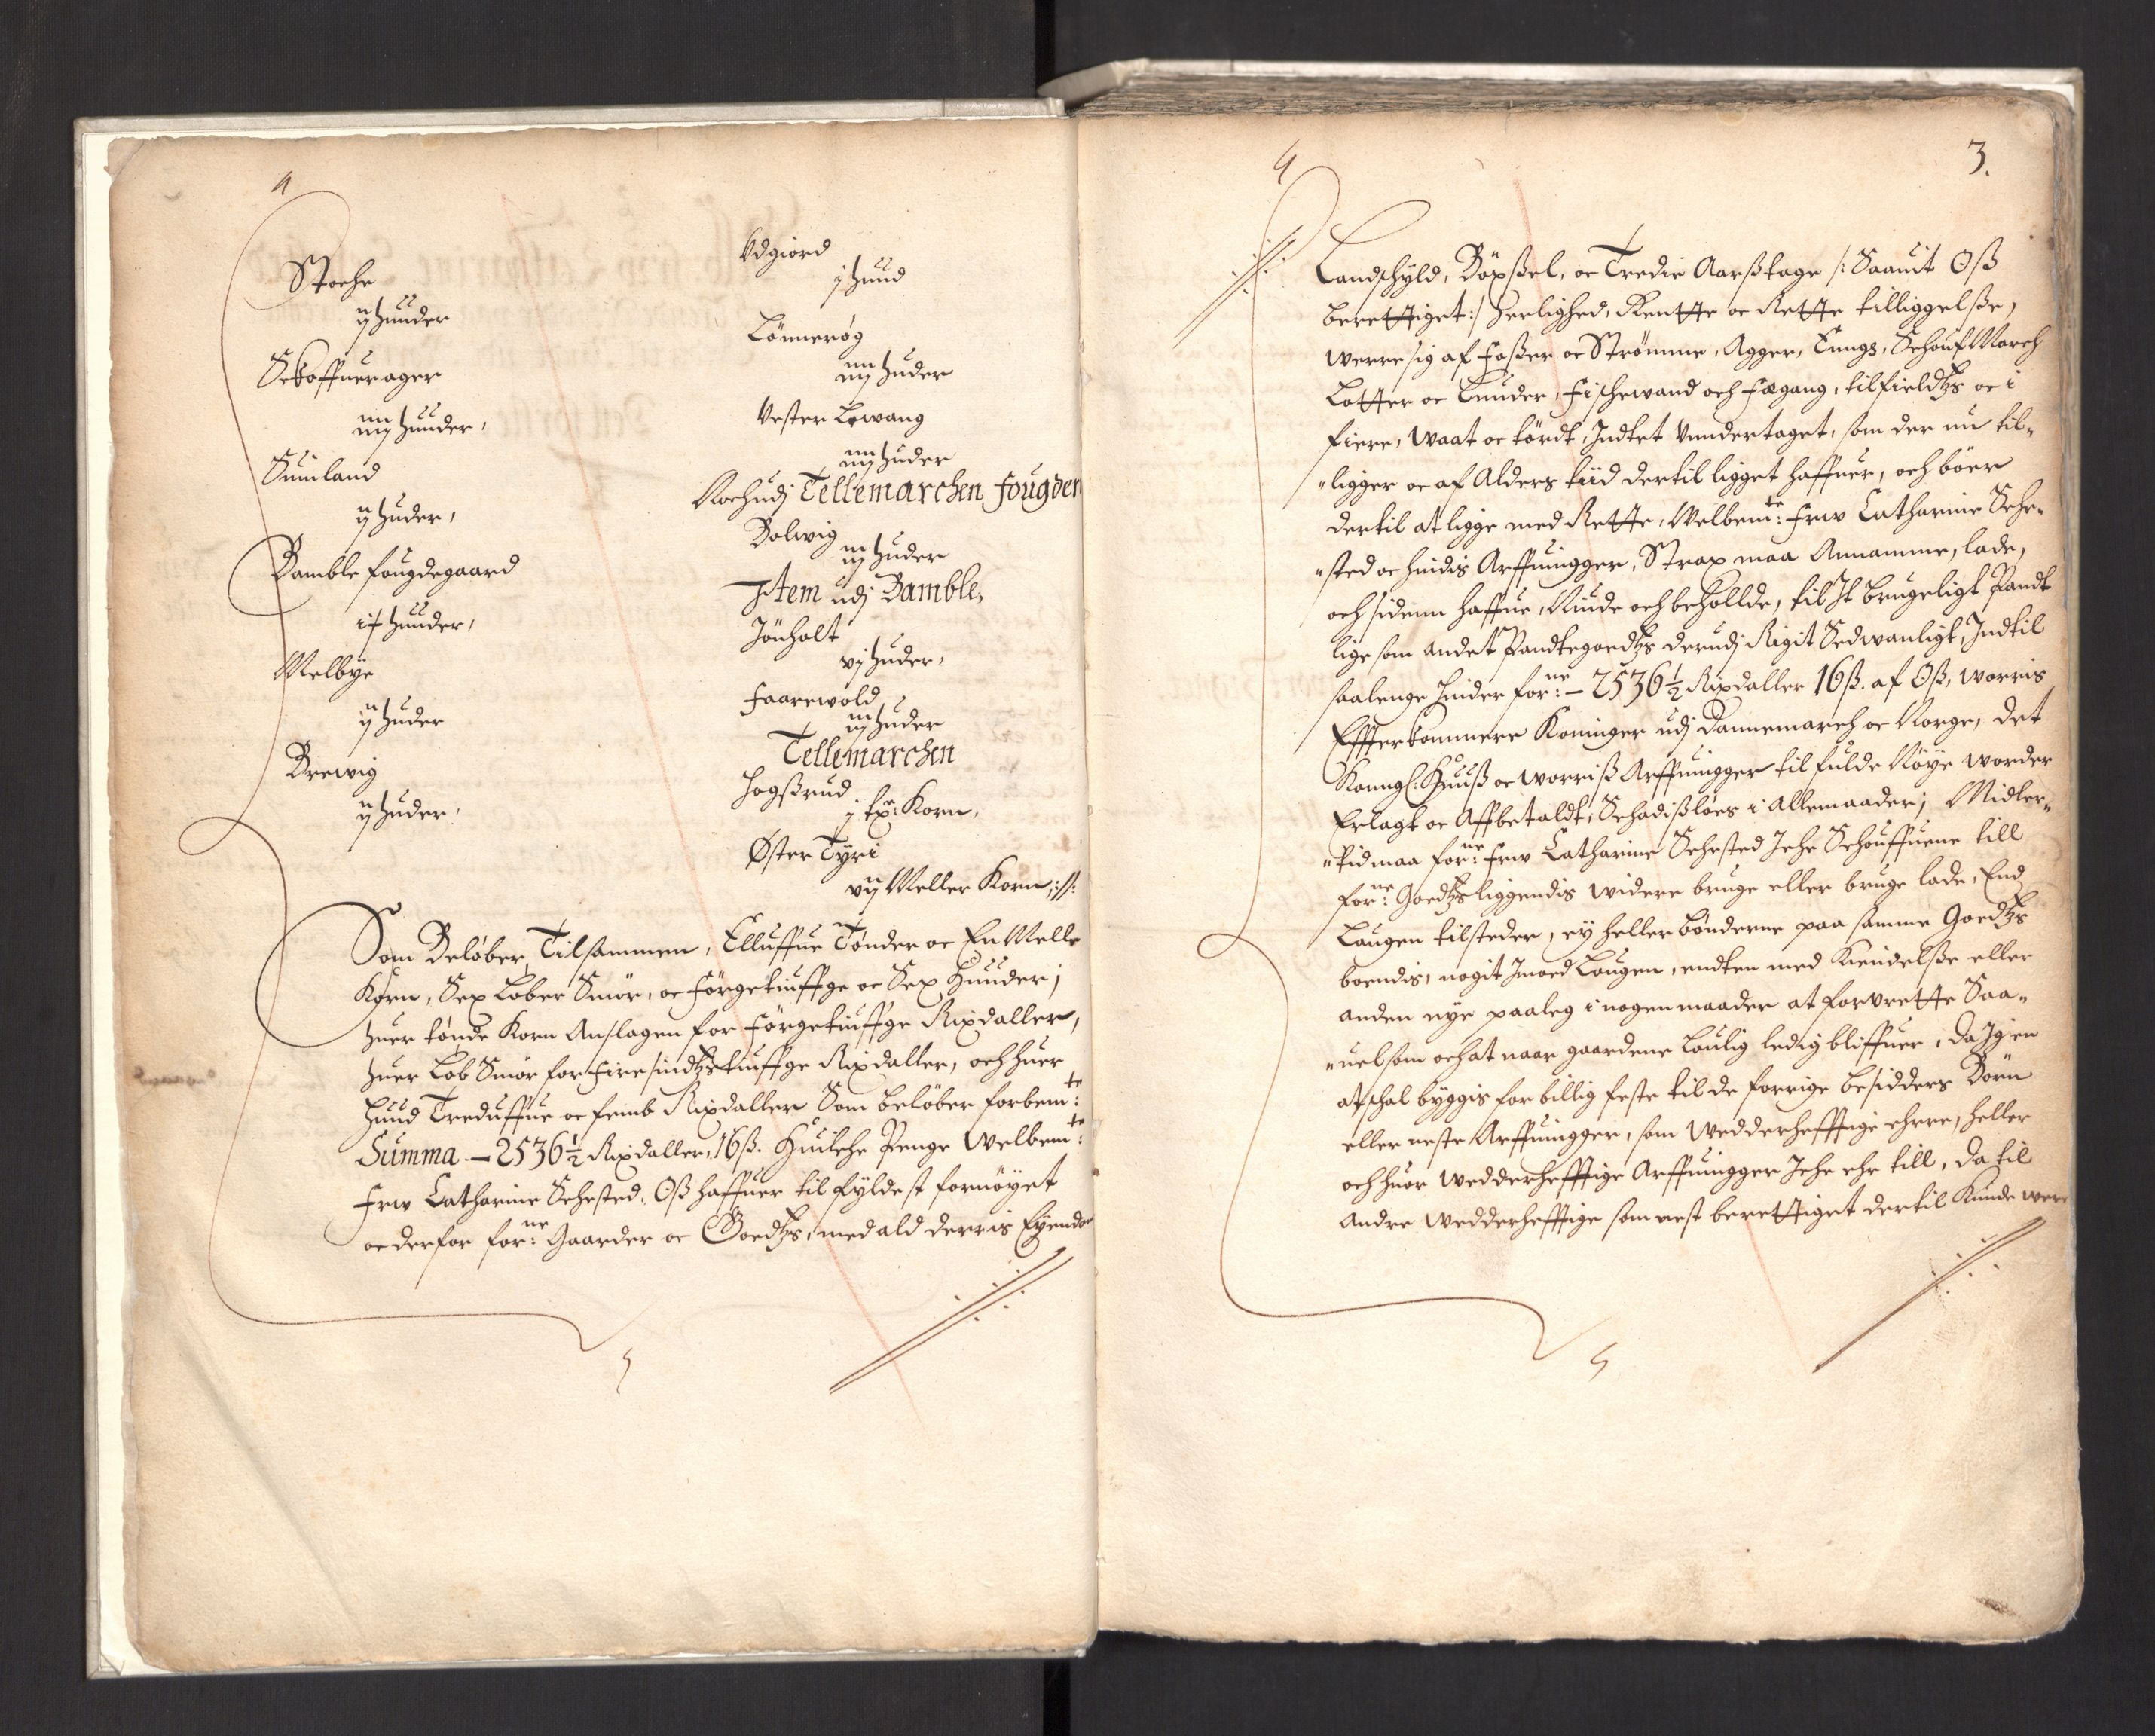 Stoche
ij huuder
Sckoffuerager
iiij huuder,
Suinland
ij huder,
Bamble fougdegaard
1½ huuder,
Melbye
ij huder
Brewig
ij huder,
Udgiord
j huud
Lönnerög
iiij huder
Vester Lowang
iiij huder
Noch udj Tellemarchen fougderi
Bolwig
iij huder
Item udj Bamble,
Jönholt
vj huder,
Faarewold
iij huder
Tellemarchen
Hogßrud
j tr: Korn,
Øster Tyri
vij Meller Korn ://:
Som Beløber Tilsammen, Elluffue Tønder oc En Melle
Korn, Sex Løber Smör, oc förgetiuffge oc Sex Huuder;
huer tønde Korn Anslagen for förgetiuffge Rixdaller,
huer Løb Smör for Fire sindtzstiuffge Rixdaller, och huer
Huud Treduffue oc femb Rixdaller Som beløber forbemte:
Summa – 2536½ Rixdaller, 16ß. Huilche Penge Welbemte:
Frw Catharine Sehested, Oß haffuer til fyldest fornöyet
oc derfor forne: Gaarder oc Goedtzs, med ald derris Eyendom
3.
Landschyld, Böxßel, oc Tredie Aarßtage /: Saauit Oß
berettiget :/ Herlighed, Rentte oc Rette tilliggelße,
werre sig af Foßer oc Strømme, Agger, Eungs, Schouf March
Lotter oc Lunder, Fischewand och Fægang, til fieldtzs oc i
fiere, waat oc tördt, Indtet Vndertaget, som der nu til„
„ligger oc af Alders tiid dertil ligget haffuer, och böer
dertil at ligge med Rette, Welbemte: Frw Catharine Sehe„
„sted oc hindis Arffuingger, Strax maa Annamme, lade,
och sidenn haffue, Niude och beholde, til It brugeligt Pandt
lige som andet Pandtegoedtzs derudj Rigit Sedwanligt, Indtil
saalenge hinder forne: – 2536½ Rixdaller 16ß. af Oß, worris
Effterkommere Koninger udj Dannemarch oc Norge, det
Konngl: Huuß oc worriß Arffuingger til fulde Nöye worder
Erlagt oc Affbetaldt, Schadißlöes i Allemaader; Midler„
„tid maa forne: Frw Catharine Sehested Iche Schouffuene till
forne: Goedtzs liggendis widere bruge eller bruge lade, End
Laugen tilsteder, ey heller bönderne paa samme Goedtzs
boendis, nogit Imoed Laugen, endten med Kiendelße eller
anden nye paaleg i nogen maader at forvrette Saa„
„uelsom och at naar gaardene Laulig ledig bliffuer, da Igien
at schal byggis for billig feste til de forrige besidders Börn
eller neste Arffuingger, som Wedderhefftige ehrre, heller
och huor Wedderhefftige Arffuingger Iche ehr till, da til
Andre Wedderhefftige som nest berettiget dertil Kunde were